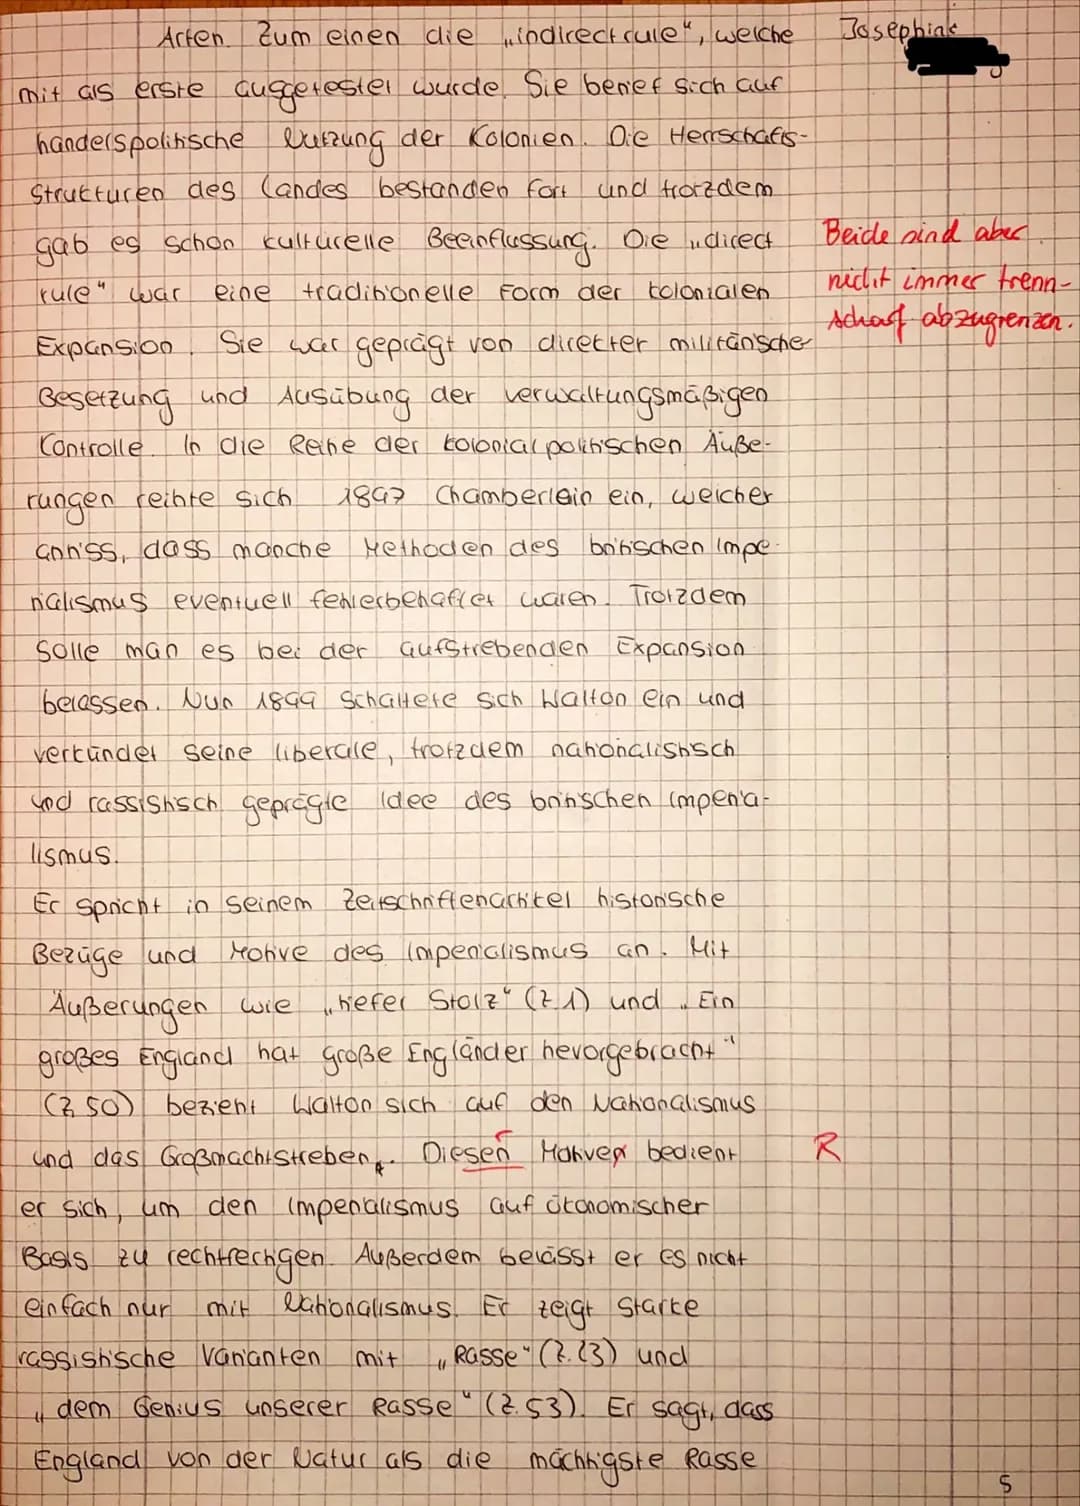 Arten. Zum einen die „indirect rule", welche
Josephine
mit als erste ausgetestet wurde. Sie berief sich auf
handelspolitische Nutzung der Kolonien. Die Herrschafts-
strukturen des Landes bestanden fort und trotzdem
gab es schon kulturelle Beeinflussung. Die „direct
Beide sind aber
rule" war eine traditionelle Form der kolonialen
nicht immer trenn-
scharf abzugrenzen.
Expansion. Sie war geprägt von direkter militärischer
Besetzung und Ausübung der verwaltungsmäßigen
Controlle. In die Reihe der kolonialpolitischen Äuße-
rungen reihte sich 1897 Chamberlein ein, welcher
anriss, dass manche Methoden des britischen Impe-
rialismus eventuell fehlerbehaftet waren. Trotzdem
solle man es bei der aufstrebenden Expansion
belassen. Nun 1899 schaltete sich Walton ein und
verkündet seine liberale, trotzdem nationalistisch
und rassistisch geprägte Idee des britischen Imperia-
lismus.
Er spricht in seinem Zeitschriftenartikel historische
Bezüge und Motive des Imperialismus an. Mit
Äußerungen wie „tiefer Stolz" (Z.1) und „Ein
großes England hat große Engländer hevorgebracht"
(Z.50) bezieht Walton sich auf den Nationalismus
und das Großmachtstreben. Diesen Motiven bedient
R
er sich, um den Imperialismus auf ökonomischer
Basis zu rechtfertigen. Außerdem belässt er es nicht
einfach nur mit Nationalismus. Er zeigt starke
rassistische Varianten mit „Rasse" (Z.23) und
„dem Genius unserer Rasse" (Z.53). Er sagt, dass
England von der Natur als die mächtigste Rasse
5